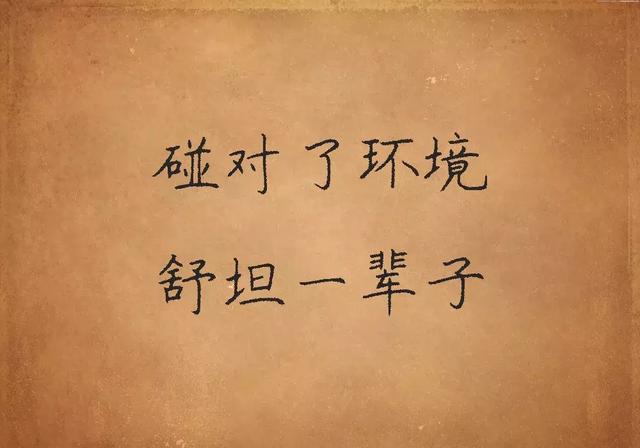 碰对了环境
舒坦一辈子